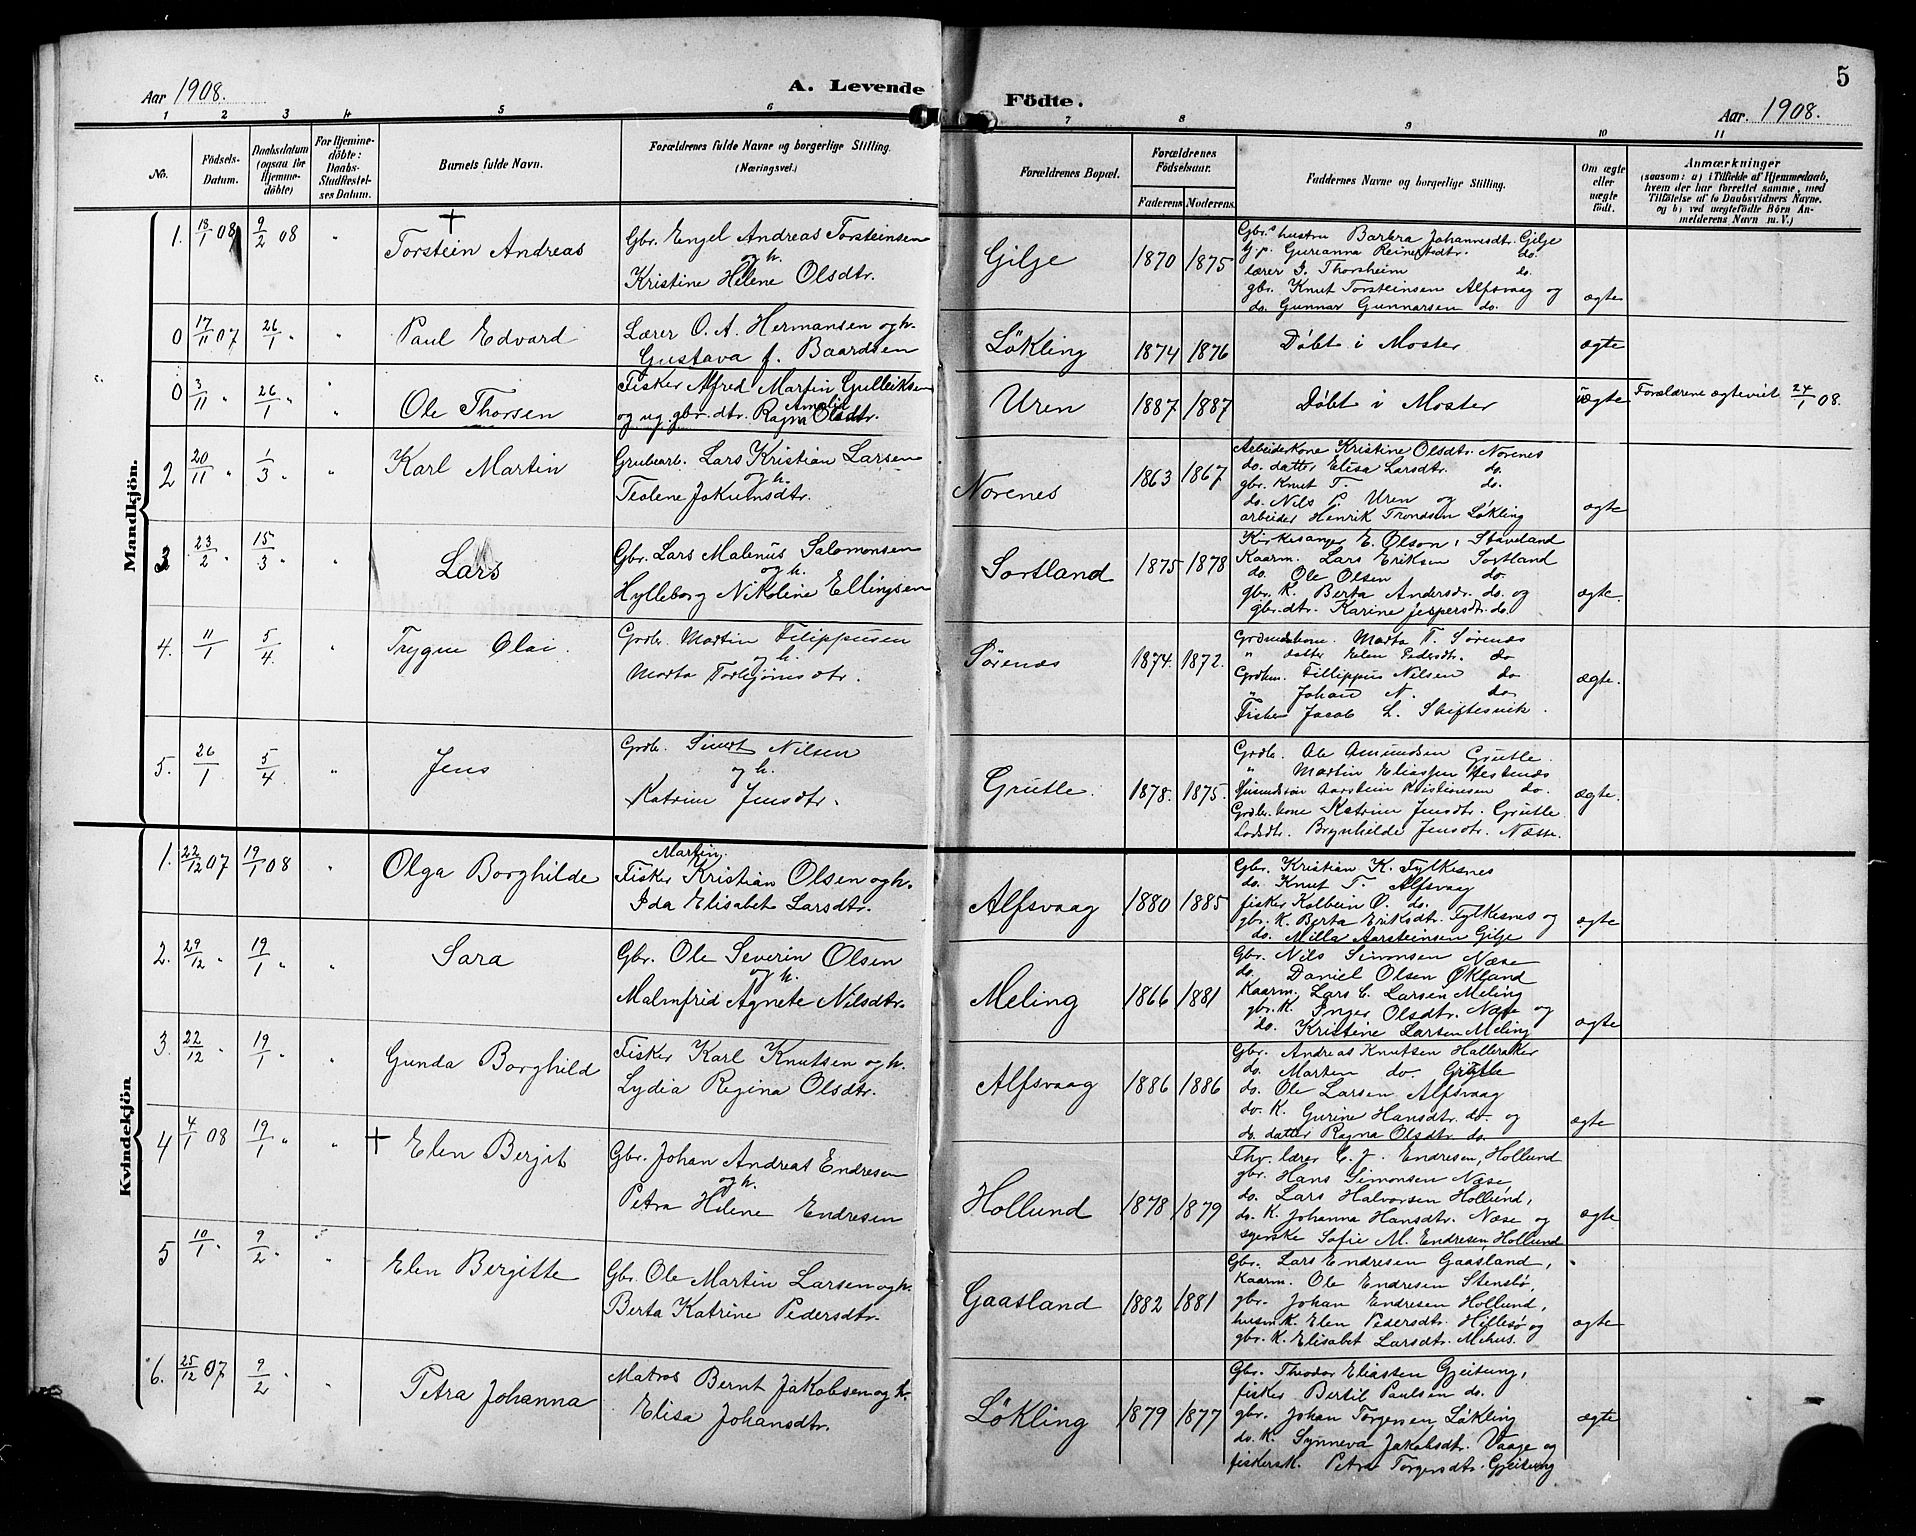 Aar 1908.
A. Levende
Födte.
Aar. 1908.
5
1 2 3 4 5 6 7 8 9 10 11
No.
Födsels-
Datum.
Daabsdatum
(ogsaa for
Hjemme-
döbte)
For Hjemme-
döbte:
Daabs-
Stadfæstel-
ses Datum.
Barnets fulde Navn.
Forældrenes fulde Navne og borgerlige Stilling.
(Næringsvei.)
Forældrenes Bopæl.
Forældrenes
Födselsaar.
Faderens
Moderens.
Faddernes Navne og borgerlige Stilling.
Om ægte
eller
uægte
født.
Anmærkninger
(saasom: a) i Tilfælde af Hjemmedaab,
hvem der har forrettet samme, med
Tilföielse af to Daabsvidners Navne.
og b) ved uægtefödte Börn An-
melderens Navn m. V.)
Mandkjön.
1. 18/1 08 9/2 08 "
†
Torstein Andreas
Gbr. Engel Andreas Torsteinsen
og h.
Kristine Helene Olsdtr.
Gilje
1870 1875
Gbr.s hustru Barbra Johannesdtr. Gilje
Gureanna Reinertdtr. do.
lærer Thorsheim do.
gbr. Knut Torsteinsen Alfsvaag og
do. Gunnar Gunnarsen do.
ægte
0 17/11 07 26/1 " "
Paul Edvard
Lærer O. A. Hermansen og h.
Gustava f. Baardsen
Løkling
1874 1876
Døbt i Moster
ægte
0 3/11 " 26/1 " "
Ole Thorsen
Fisker Alfred Martin Gulleiksen
og ug. gbr. dtr. Ragna Amalia Olsdtr.
Uren
1887 1887
Døbt i Moster
uægte
Forældrene ægteviet 24/1 08.
2 20/11 " 1/3 " "
Karl Martin
Grubearb. Lars Kristian Larsen
og h.
Teolene Jakumsdtr.
Norenes
1863 1867
Arbeiderkone Kristine Olsdtr. Norenes
do. datter Elisa Larsdtr. do.
gbr. Knut T. do.
do. Nils P. Uren og
arbeider Henrik Trondsen Løkling
ægte
3 23/2 " 15/3 " "
Lars
Gbr. Lars Malenus Salomonsen
og h.
Hylleborg Nikoline Ellingsen
Sortland
1875 1878
Kirkesanger E. Olson, Staveland
Kaarm. Lars Eriksen Sortland
do. Ole Olsen do.
gbr. K. Berta Andersdtr. do. og
gbr. dtr. Karine Jespersdtr. do.
ægte.
4. 11/1 5/4 "
Trygve Olai.
Grdbr. Martin Filippusen
og h.
Marta Torbjønsdtr.
Sørenæs
1874. 1872.
Marta T. Sørenæs
" datter Elen Pedersdtr. do
Grdbm. Fillippus Nilsen do
" Johan N. do
Fisker Jacob L. Skiftesvik.
ægte.
5. 26/1 5/4 "
Jens
Grdb. Sivert Nilsen
og h.
Katrine Jensdtr.
Grutle.
1878. 1875.
Grdb. Ole Amundsen Grutle.
" Martin Eliassen Vestenæs
Husmdsøn Aarstein Kristiansen do.
Grdbr. kone Katrine Jensdtr. Grutle
Brynhilde Jensdtr. Næsse.
ægte.
Kvindekjön
1. 22/12 07 19/1 08 "
Olga Borghilde
Martin
Fisker Kristian Olsen og h.
Ida Elisabet Larsdtr.
Alfsvaag
1880 1885
Gbr. Kristian K. Fylkesnes
do. Knut T. Alfsvaag
fisker Kolbein O. do.
gbr. K. Berta Eriksdtr. Fylkesnes og
do. Milla Aarsteinsen Gilje
ægte
2. 29/12 " 19/1 " "
Sara
Gbr. Ole Severin Olsen
og h.
Malmfrid Agnete Nilsdtr.
Meling
1866 1881
Gbr. Nils Simonsen Næse
do. Daniel Olsen Økland
Kaarm. Lars C. Larsen Meling
gbr. K. Inger Olsdtr. Næse og
do. Kristine Larsen Meling
ægte
3. 22/12 " 19/1 " "
Gunda Borghild
Fisker Karl Knutsen og h.
Lydia Regina Olsdtr.
Alfsvaag
1886 1886
Gbr. Andreas Knutsen Halleraker
do. Marten do. Grutle
do. Ole Larsen Alfsvaag
do. K. Gurine Hansdtr. do. og
do. datter Ragna Olsdtr. do.
ægte
4 4/1 08 19/1 " "
† Elen Bergit
Gbr. Johan Andreas Endresen
og h.
Petra Helene Endresen
Hollund
1878 1879
Fhv. lærer C. J. Endresen, Hollund
gbr. Hans Simonsen Næse,
do. Lars Halvorsen Hollund,
do. K. Johanna Hansdtr. Næse og
syerske Sofie M. Endresen Hollund
ægte
5 10/1 " 9/2 " "
Elen Bergitte
Gbr. Ole Martin Larsen og h.
Berta Katrine Pedersdtr.
Gaasland
1882 1881
Gbr. Lars Endresen Gaasland,
Kaarm. Ole Endresen Stensbø,
gbr. Johan Endresen Hollund,
husm. K. Elen Pedersdtr. Hillesø og
gbr. K. Elisabet Larsdtr. Mehus.
ægte
6. 25/12 07 9/2 " "
Petra Johanna
Matros Bernt Jakobsen og h.
Elisa Johansdtr.
Løkling
1879 1877
Gbr. Theodor Eliassen Gjeitung,
fisker Bertil Paulsen do.
gbr. Johan Torgersen Løkling
do. K. Synneva Jakobsdtr. Vaage og
fiskersk. Petra Torgersdtr. Gjeitung
ægte